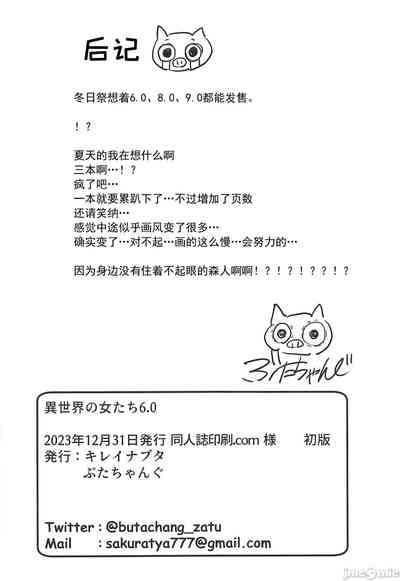 后记
冬日祭想着6.0、8.0、9.0都能发售。
！？
夏天的我在想什么啊
三本啊…！？
疯了吧…
一本就要累趴下了…不过增加了页数
还请笑纳…
感觉中途似乎画风变了很多…
确实变了…对不起…画的这么慢…会努力的…
因为身边没有住着不起眼的森人啊啊！？！？！？！？
ぶたちゃんぐ
異世界の女たち6.0
2023年12月31日発行 同人誌印刷.com 様 初版
発行：キレイナブタ
ぶたちゃんぐ
Twitter : @butachang_zatu
Mail : sakuratya777@gmail.com